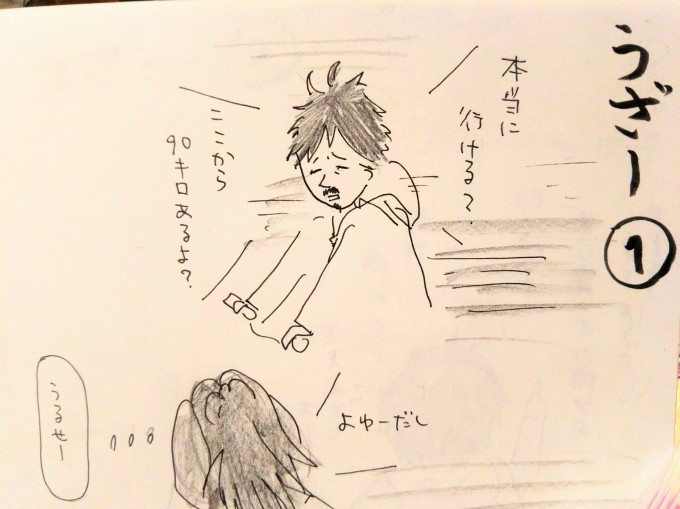 うざー①
本当に
行ける?
ここから
90キロあるよ?
よゆーだし
うるせー